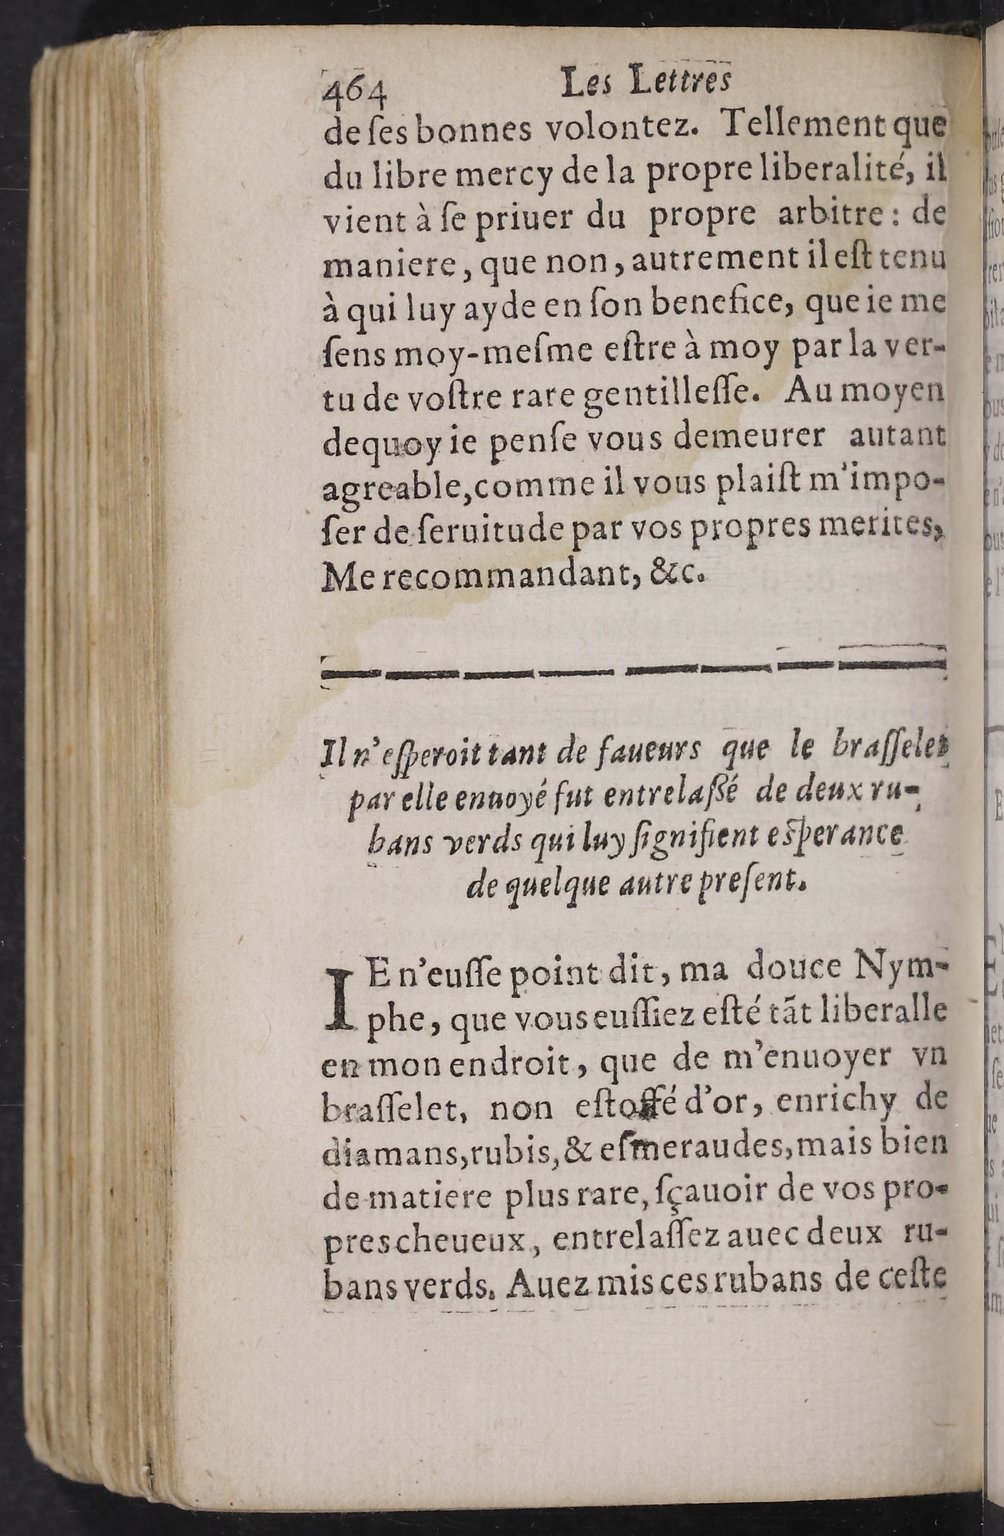 464 Les Lettres
de ſes bonnes volontez. Tellement que
du libre mercy de la propre liberalité, il
vient à ſe priuer du propre arbitre: de
maniere, que non, autrement il eſt tenu
à qui luy ayde en ſon benefice, que ie me
ſens moy-meſme eſtre à moy par la ver-
tu de voſtre rare gentilleſſe. Au moyen
dequoy ie penſe vous demeurer autant
agreable, comme il vous plaiſt m'impo-
ſer de ſeruitude par vos propres merites,
Me recommandant, &c.
Il n'eſperoit tant de faueurs que le braſſelet
par elle enuoyé fut entrelaſſé de deux ru-
bans verds qui luy ſignifient eſperance
de quelque autre preſent.
IE n'euſſe point dit, ma douce Nym-
phe, que vous euſſiez eſté tāt liberalle
en mon endroit, que de m'enuoyer vn
braſſelet, non eſtoffé d'or, enrichy de
diamans, rubis, & eſmeraudes, mais bien
de matiere plus rare, ſçauoir de vos pro-
pres cheueux, entrelaſſez auec deux ru-
bans verds. Auez mis ces rubans de ceſte